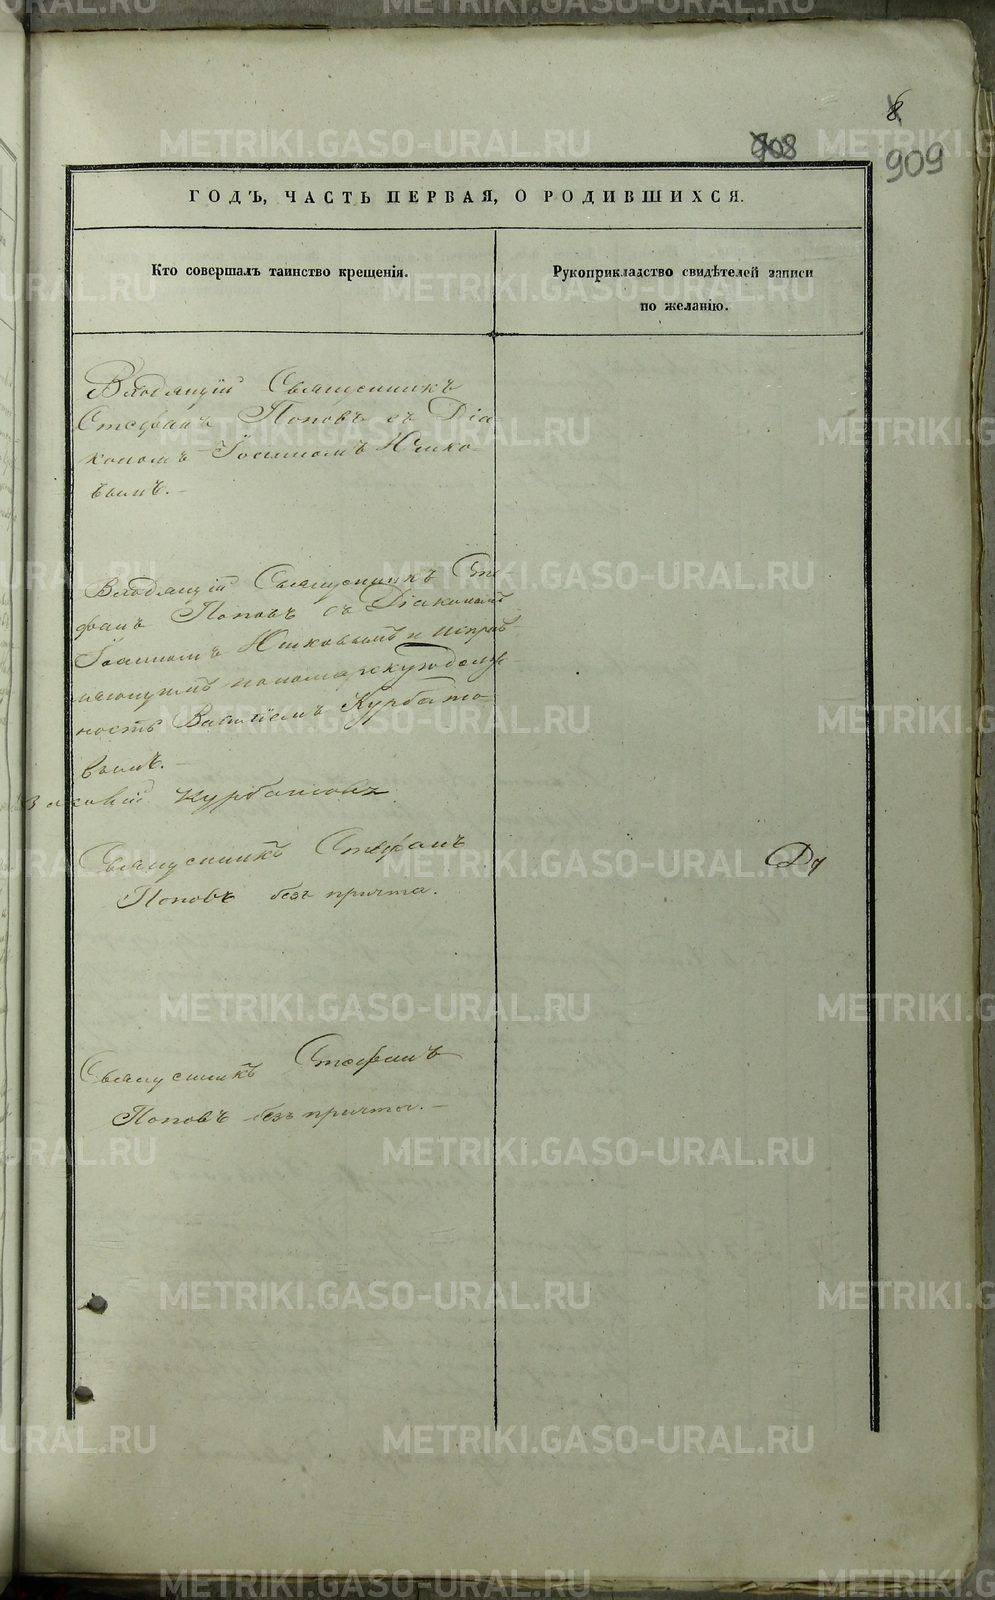 8.
908
909
ГОДЪ, ЧАСТЬ ПЕРВАЯ, О РОДИВШИХСЯ.
Кто совершалъ таинство крещенія.
Рукоприкладство свидѣтелей записи
по желанію.
Владящій Священникъ
Стефанъ Поповъ съ Діа
кономъ Іоанномъ Юшко-
вымъ.-
Владящій Священникъ Сте-
фанъ Поповъ съ Діакономъ
Іоанномъ Юшковымъ и исправ-
ляющимъ пономарскую долж-
ность Василіемъ Курбато-
вымъ.-
Курбатовъ
Священникъ Стефанъ
Поповъ безъ причта.
Священникъ Стефанъ
Поповъ безъ причта.-
METRIKI.GASO-URAL.RU